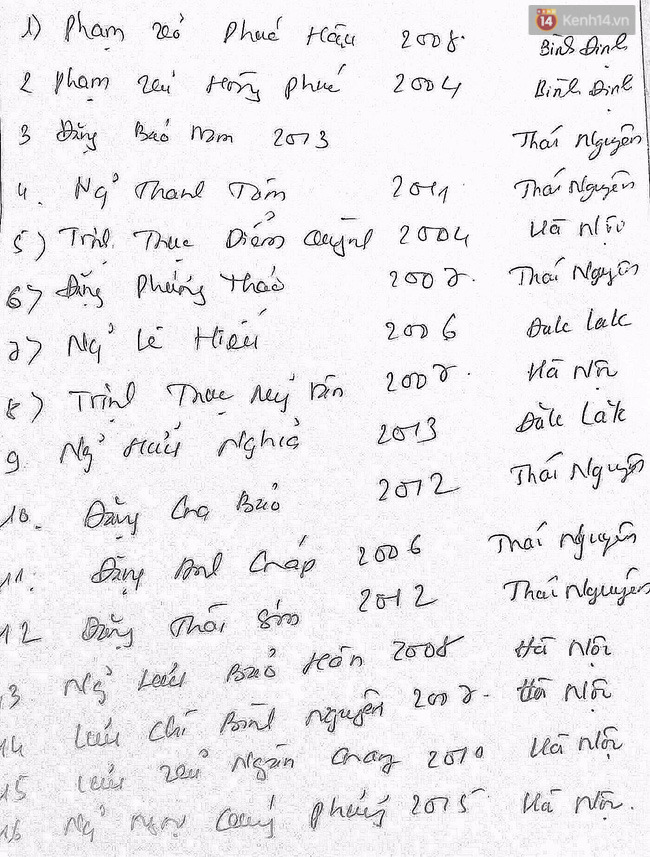 14 Kenh14.vn
1) Phạm Phú Hậu 2008. Bình Định
2 Phạm Hồng Phú 2004 Bình Định
3 Đặng Bảo Nam 2013 Thái Nguyên
4. Ng̉ Thanh Tâm 2011 Thái Nguyên
5) Trịnh Thục Diễm Quỳnh 2004 Hà Nội
6) Đặng Phương Thảo 2007. Thái Nguyên
7) Ng̉ Lê Hiếu 2006 Đăk Lăk
8) Trịnh Thục Mỹ 2007. Hà Nội
9. Ng̉ Hữu Nghĩa 2013 Đăk Lăk
10. Đặng Gia Bảo 2012 Thái Nguyên
11. Đặng Anh Pháp 2006 Thái Nguyên
12 Đặng Thái Sơn 2012 Thái Nguyên
13 Ng̉ Lưu Bảo Hân 2008 Hà Nội
14 Lưu Chí Bình Nguyên 2007. Hà Nội
15 Lưu Ngân 2010 Hà Nội
16 Ng̉ 2015 Hà Nội.